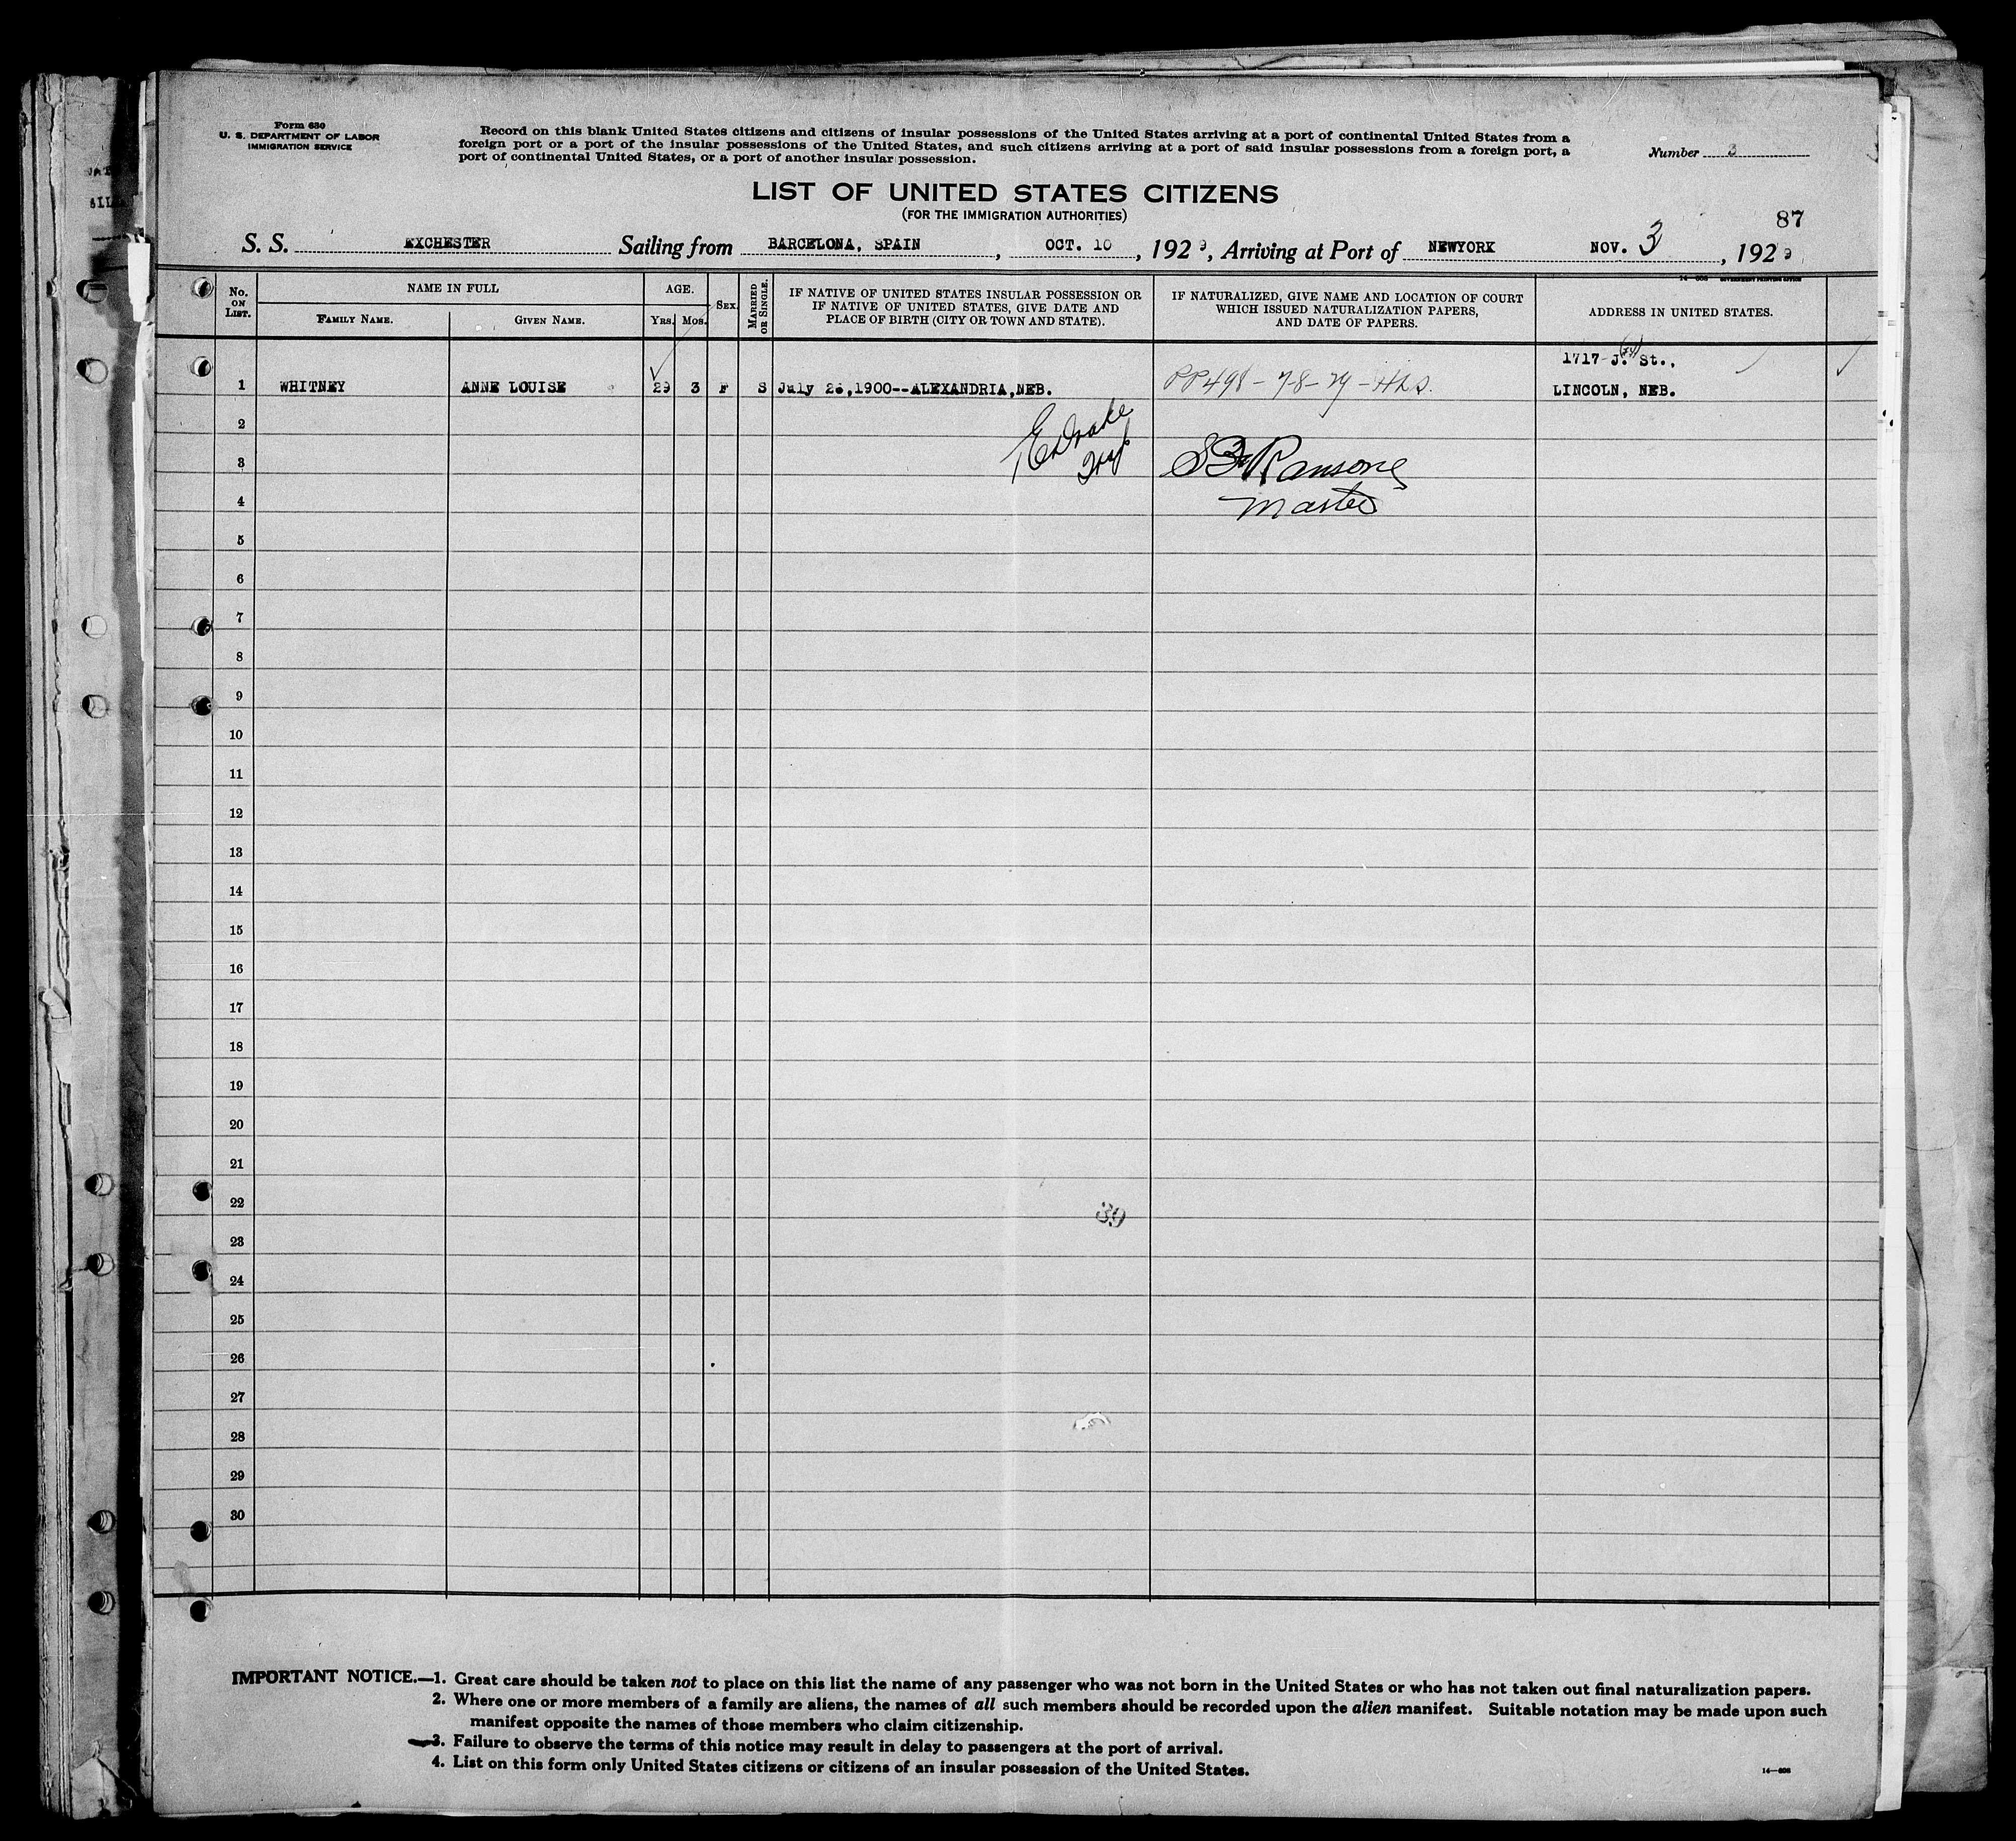 Form 630
U. S. DEPARTMENT OF LABOR
IMMIGRATION SERVICE
Record on this blank United States citizens and citizens of insular possessions of the United States arriving at a port of continental United States from a
foreign port or a port of the insular possessions of the United States, and such citizens arriving at a port of said insular possessions from a foreign port, a
port of continental United States, or a port of another insular possession.
Number 3
LIST OF UNITED STATES CITIZENS
(FOR THE IMMIGRATION AUTHORITIES)
87
S. S. EXCHESTER Sailing from BARCELONA, SPAIN, OCT. 10, 1929, Arriving at Port of NEWYORK NOV. 3, 1929
No. ON LIST.
NAME IN FULL
FAMILY NAME. GIVEN NAME.
AGE.
YRS. MOS.
SEX.
MARRIED OR SINGLE.
IF NATIVE OF UNITED STATES INSULAR POSSESSION OR
IF NATIVE OF UNITED STATES, GIVE DATE AND
PLACE OF BIRTH (CITY OR TOWN AND STATE).
IF NATURALIZED, GIVE NAME AND LOCATION OF COURT
WHICH ISSUED NATURALIZATION PAPERS,
AND DATE OF PAPERS.
ADDRESS IN UNITED STATES.
1717 J. St.,
1 WHITNEY ANNE LOUISE 29 3 F S July ,1900--ALEXANDRIA,NEB. PP498-7-8-29- LINCOLN, NEB.
2
E Drake
3 Ransone
4 Master
5
6
7
8
9
10
11
12
13
14
15
16
17
18
19
20
21
22
39
23
24
25
26
27
28
29
30
IMPORTANT NOTICE.—1. Great care should be taken not to place on this list the name of any passenger who was not born in the United States or who has not taken out final naturalization papers.
2. Where one or more members of a family are aliens, the names of all such members should be recorded upon the alien manifest. Suitable notation may be made upon such
manifest opposite the names of those members who claim citizenship.
3. Failure to observe the terms of this notice may result in delay to passengers at the port of arrival.
4. List on this form only United States citizens or citizens of an insular possession of the United States.